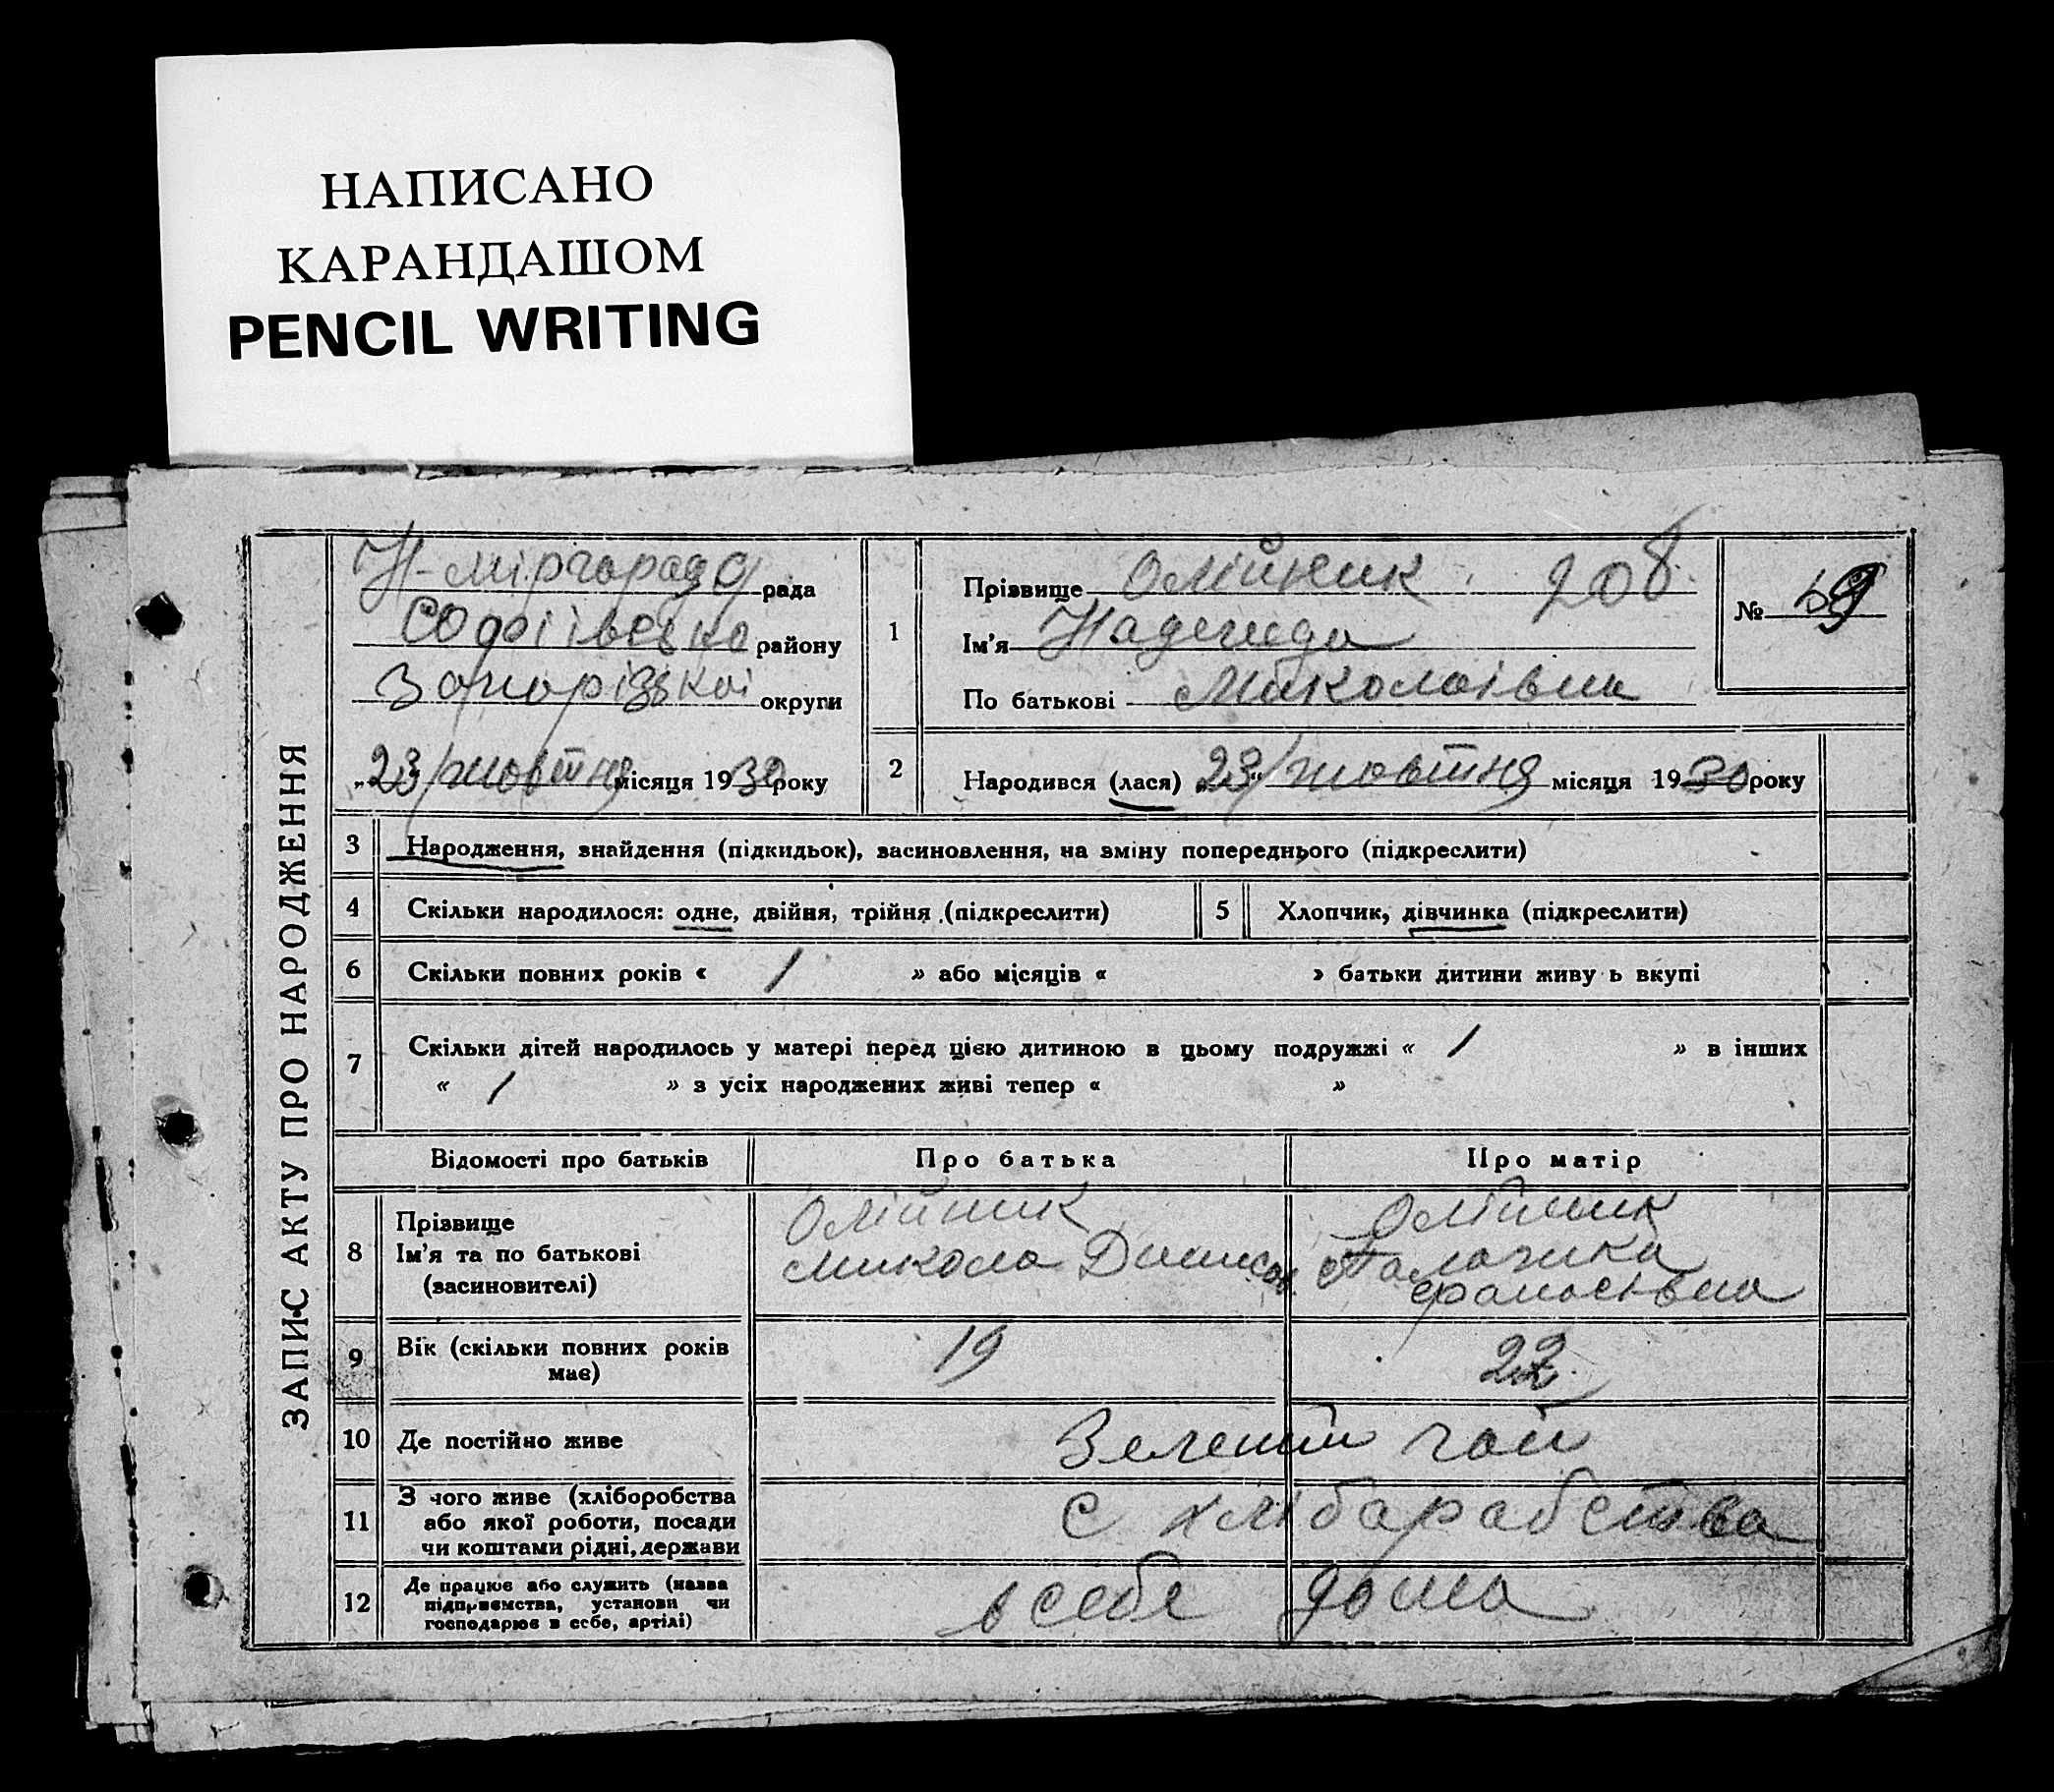 НАПИСАНО
КАРАНДАШОМ
PENCIL WRITING
ЗАПИС АКТУ ПРО НАРОДЖЕННЯ
рада
Софіївсько району
Запорізької округи
„23" жовтня місяця 1930 року
1
Прізвище Олійник 208
Ім'я Надежда
По батькові Миколаівна
№ 59
2
Народився (лася) „23" жовтня місяця 1930 року
3 Народження, знайдення (підкидьок), засиновлення, на зміну попереднього (підкреслити)
4 Скільки народилося: одне, двійня, трійня (підкреслити) 5 Хлопчик, дівчинка (підкреслити)
6 Скільки повних років « 1 » або місяців « » батьки дитини живу ь вкупі
7 Скільки дітей народилось у матері перед цією дитиною в цьому подружжі « 1 » в інших
« 1 » з усіх народжених живі тепер « »
Відомості про батьків Про батька Про матір
8 Прізвище Ім'я та по батькові (засиновителі)
Олійник Олійник
Микола Денисов.
9 Вік (скільки повних років має) 19 22
10 Де постійно живе Зелений гай
11 З чого живе (хліборобства або якої роботи, посади чи коштами рідні, держави с хлібарабства
12 Де працює або служить (назва підприємства, установи чи господарює в себе, артілі) в себе дома